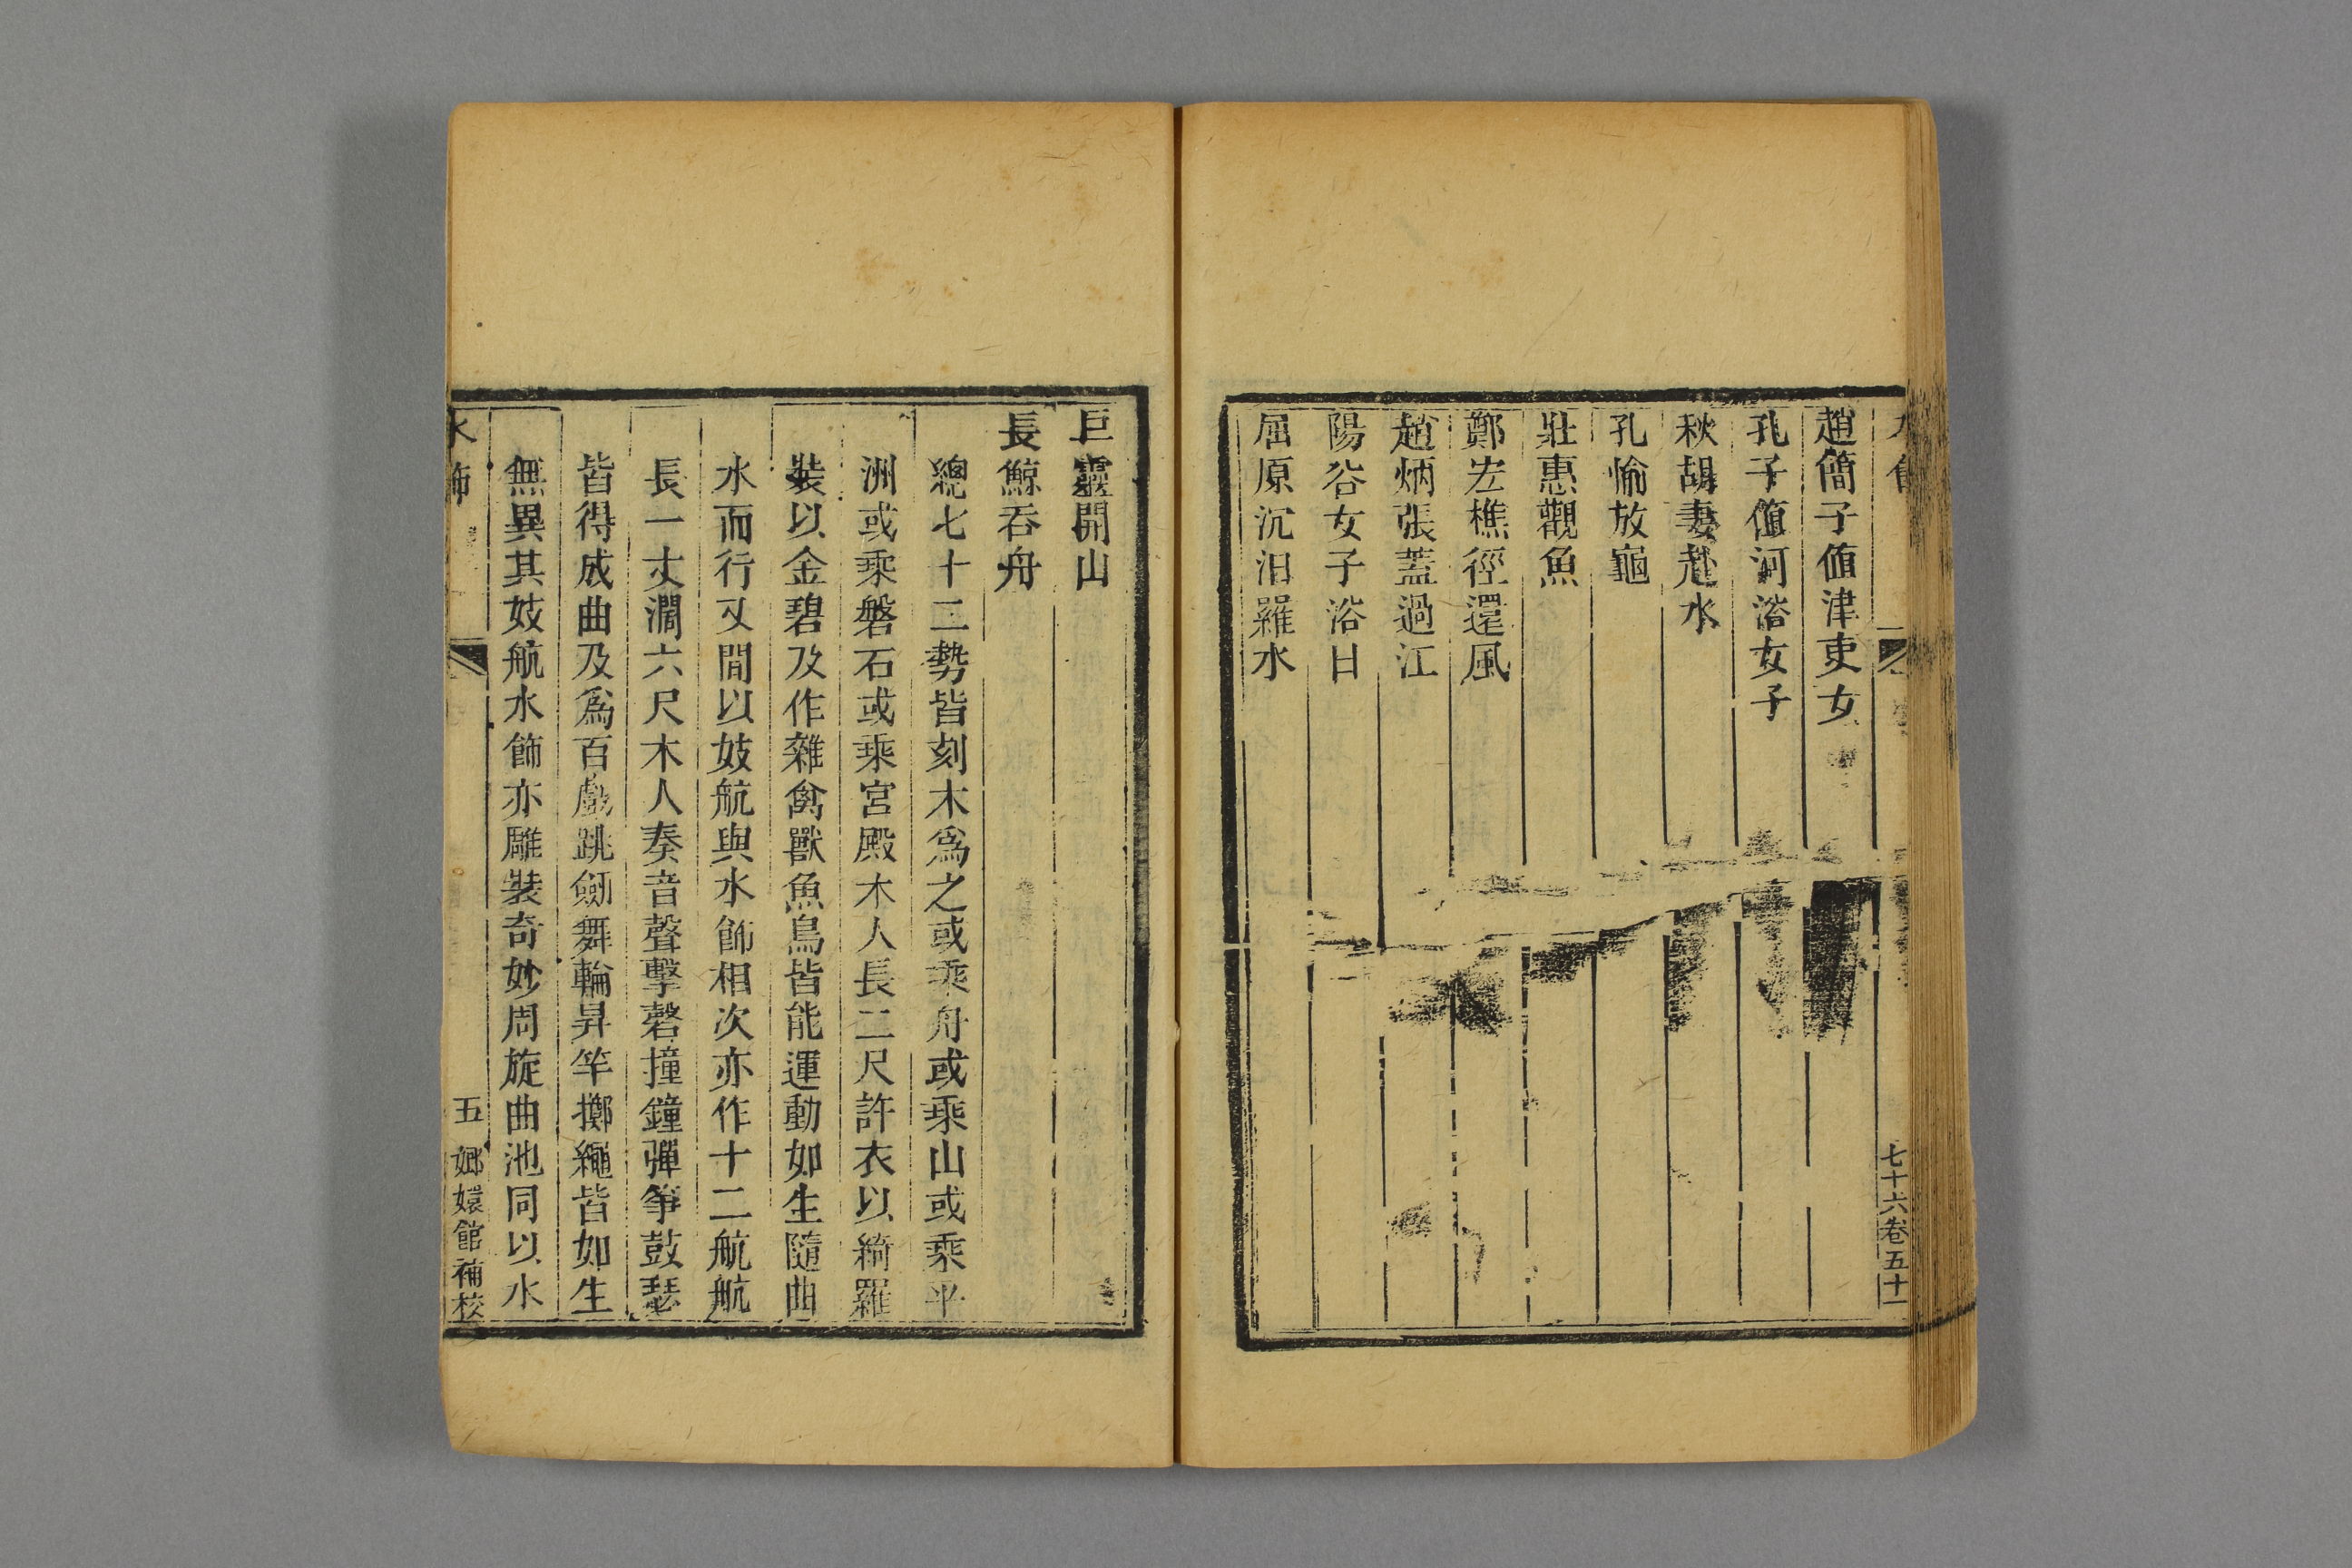 趙簡子値津吏女
孔子値河浴女子
秋胡妻赴水
孔愉放龜
壯惠觀魚
鄭宏樵徑還風
趙炳張蓋過江
陽谷女子浴日
屈原沉汨羅水
七十六卷五十一
巨靈開山
長鯨吞舟
總七十二勢皆刻木爲之或乘舟或乘山或乘平
洲或乘磐石或乘宮殿木人長二尺許衣以綺羅
裝以金碧及作雜禽獸魚鳥皆能運動如生隨曲
水而行又間以妓航與水飾相次亦作十二航航
長一丈濶六尺木人奏音聲擊磬撞鐘彈筝鼓瑟
皆得成曲及爲百戲跳劒舞輪昇竿擲繩皆如生
無異其妓航水飾亦雕裝奇妙周旋曲池同以水
水飾
五
嫏嬛館補校